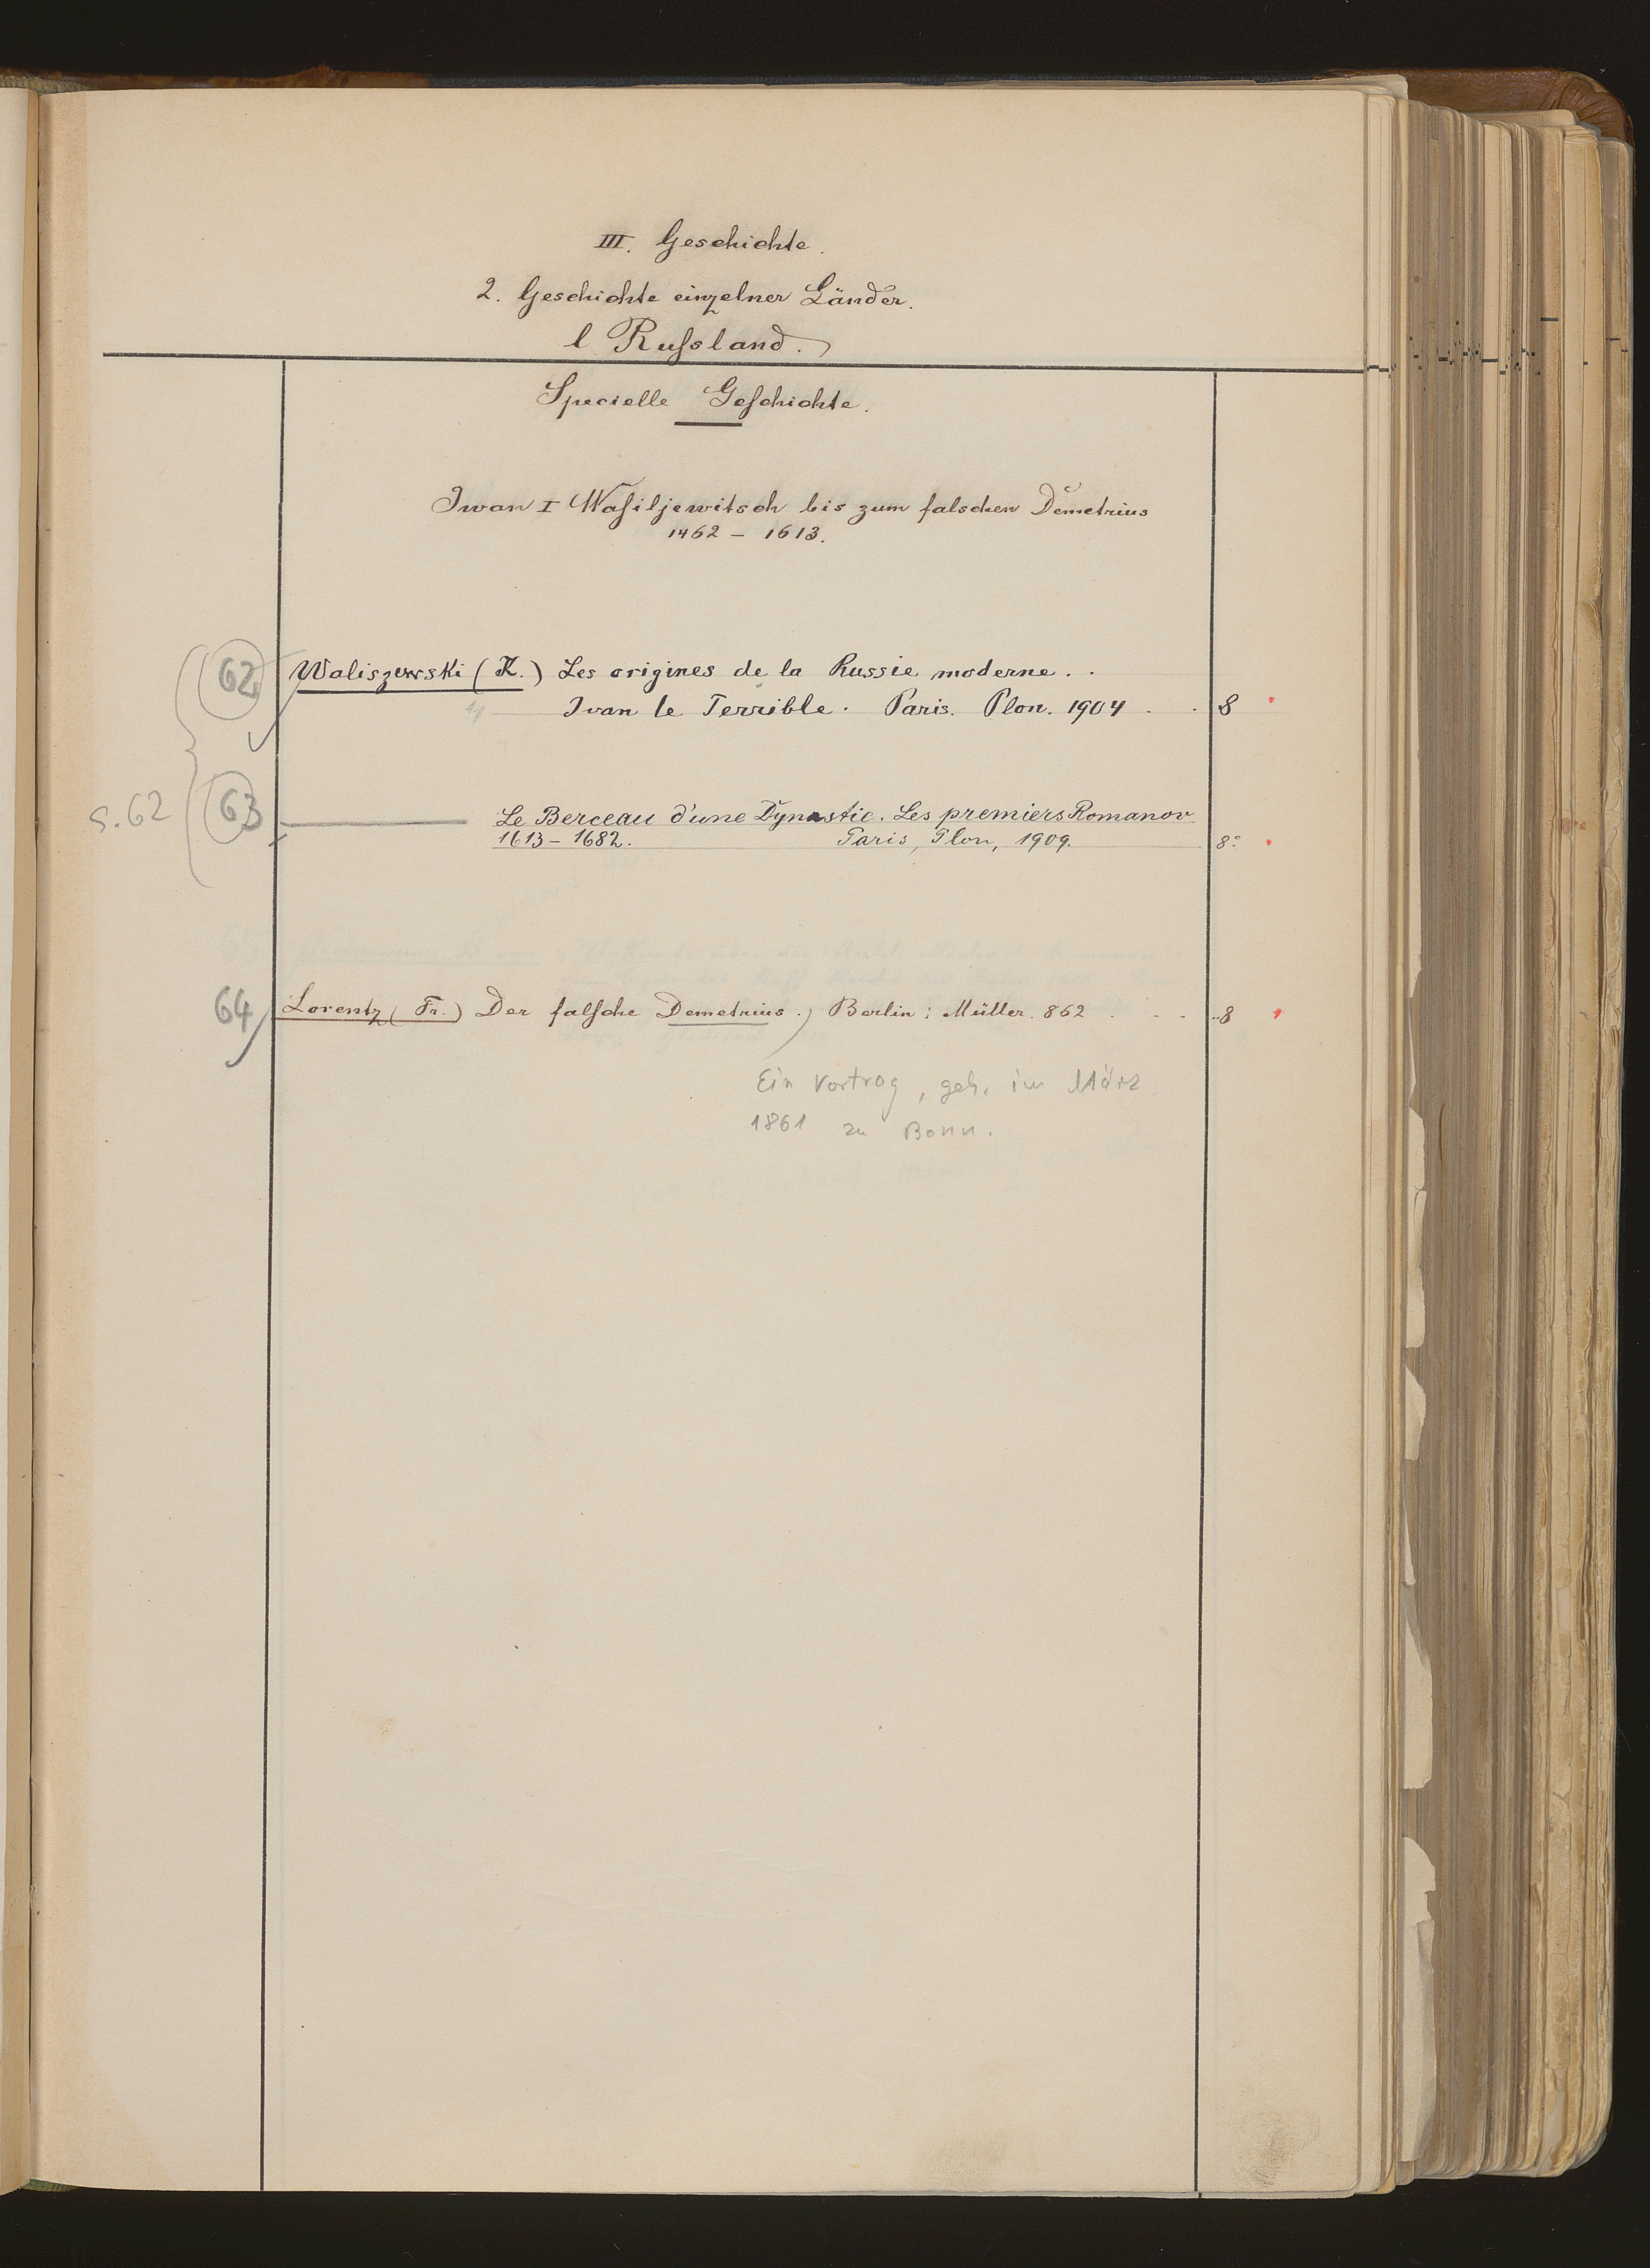 III. Geschichte.
2. Geschichte einzelner Länder.
l Rußland.
Specielle Geschichte.
Iwan I Waßiljewitsch bis zum falschen Demetrius
1462 – 1613.
62 Waliszewski (K.) Les origines de la Russie moderne . .
Ivan le Terrible. Paris. Plon. 1904 . . 8
S. 62 63 ——— Le Berceau d'une Dynastie. Les premiers Romanov
1613 – 1682. Paris, Plon, 1909. 8°
64 Lorentz (Fr.) Der falsche Demetrius. Berlin: Müller. 862 . . . . 8
Ein Vortrag, geh. im März
1861 zu Bonn.